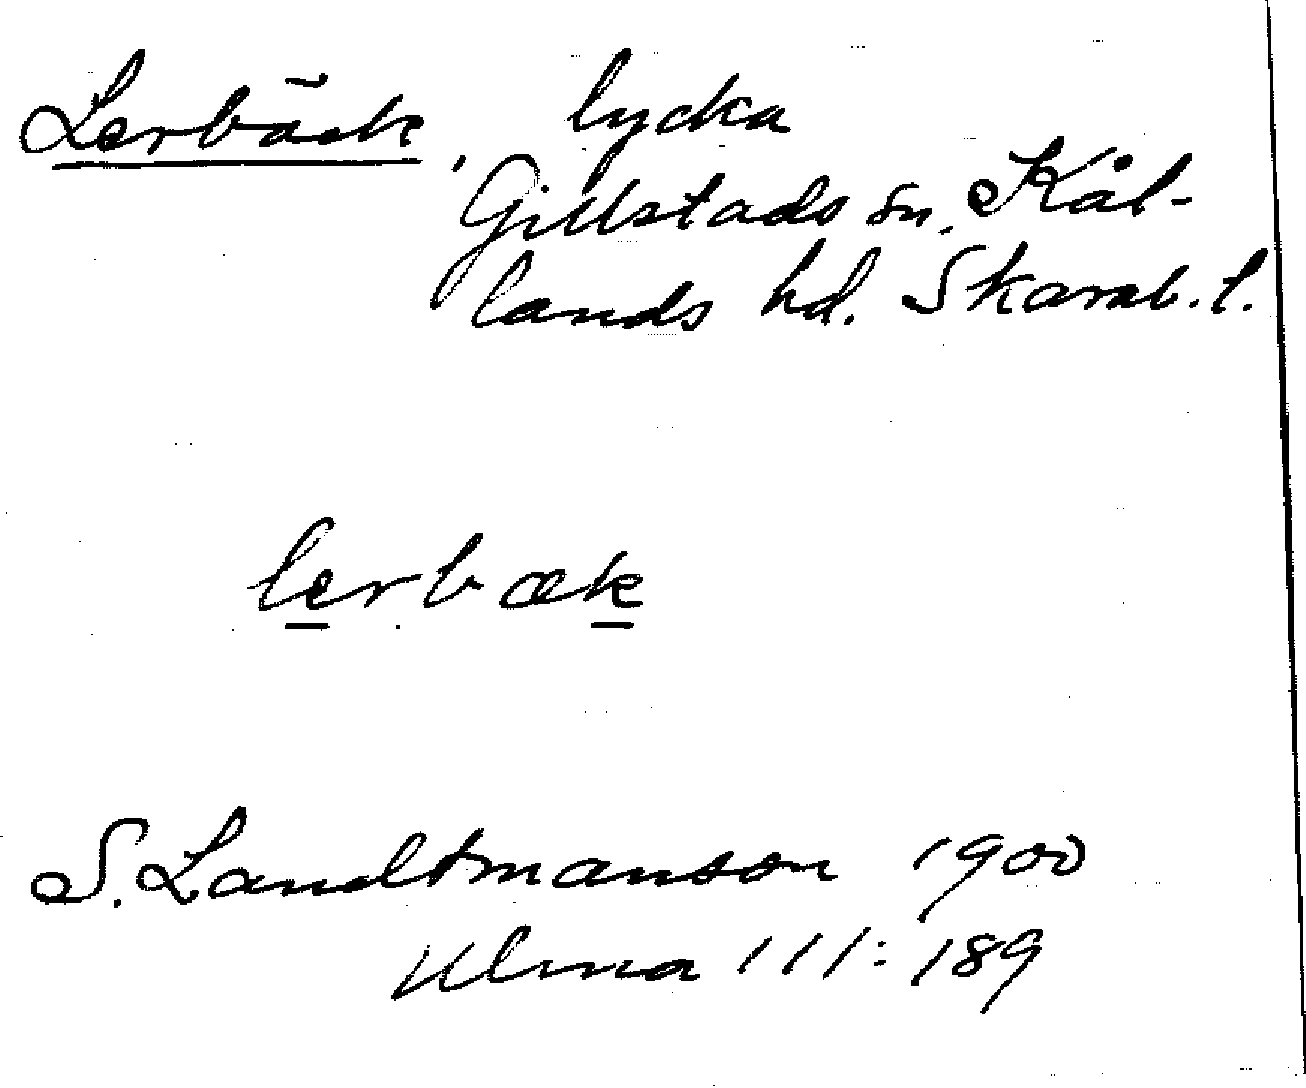 Lerbäck, lycka
Gillstads sn. Kål-
lands hd. Skarab. l.
lerbæk
S. Landtmanson 1900
Ulma 111:189